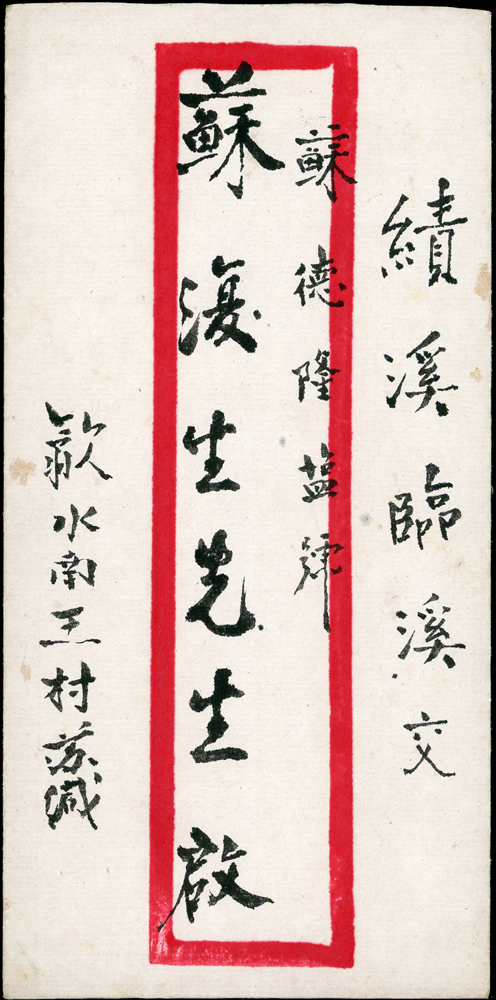 績溪臨溪交
蘇德隆塩號
蘇復生先生啟
歙水南王村苏緘